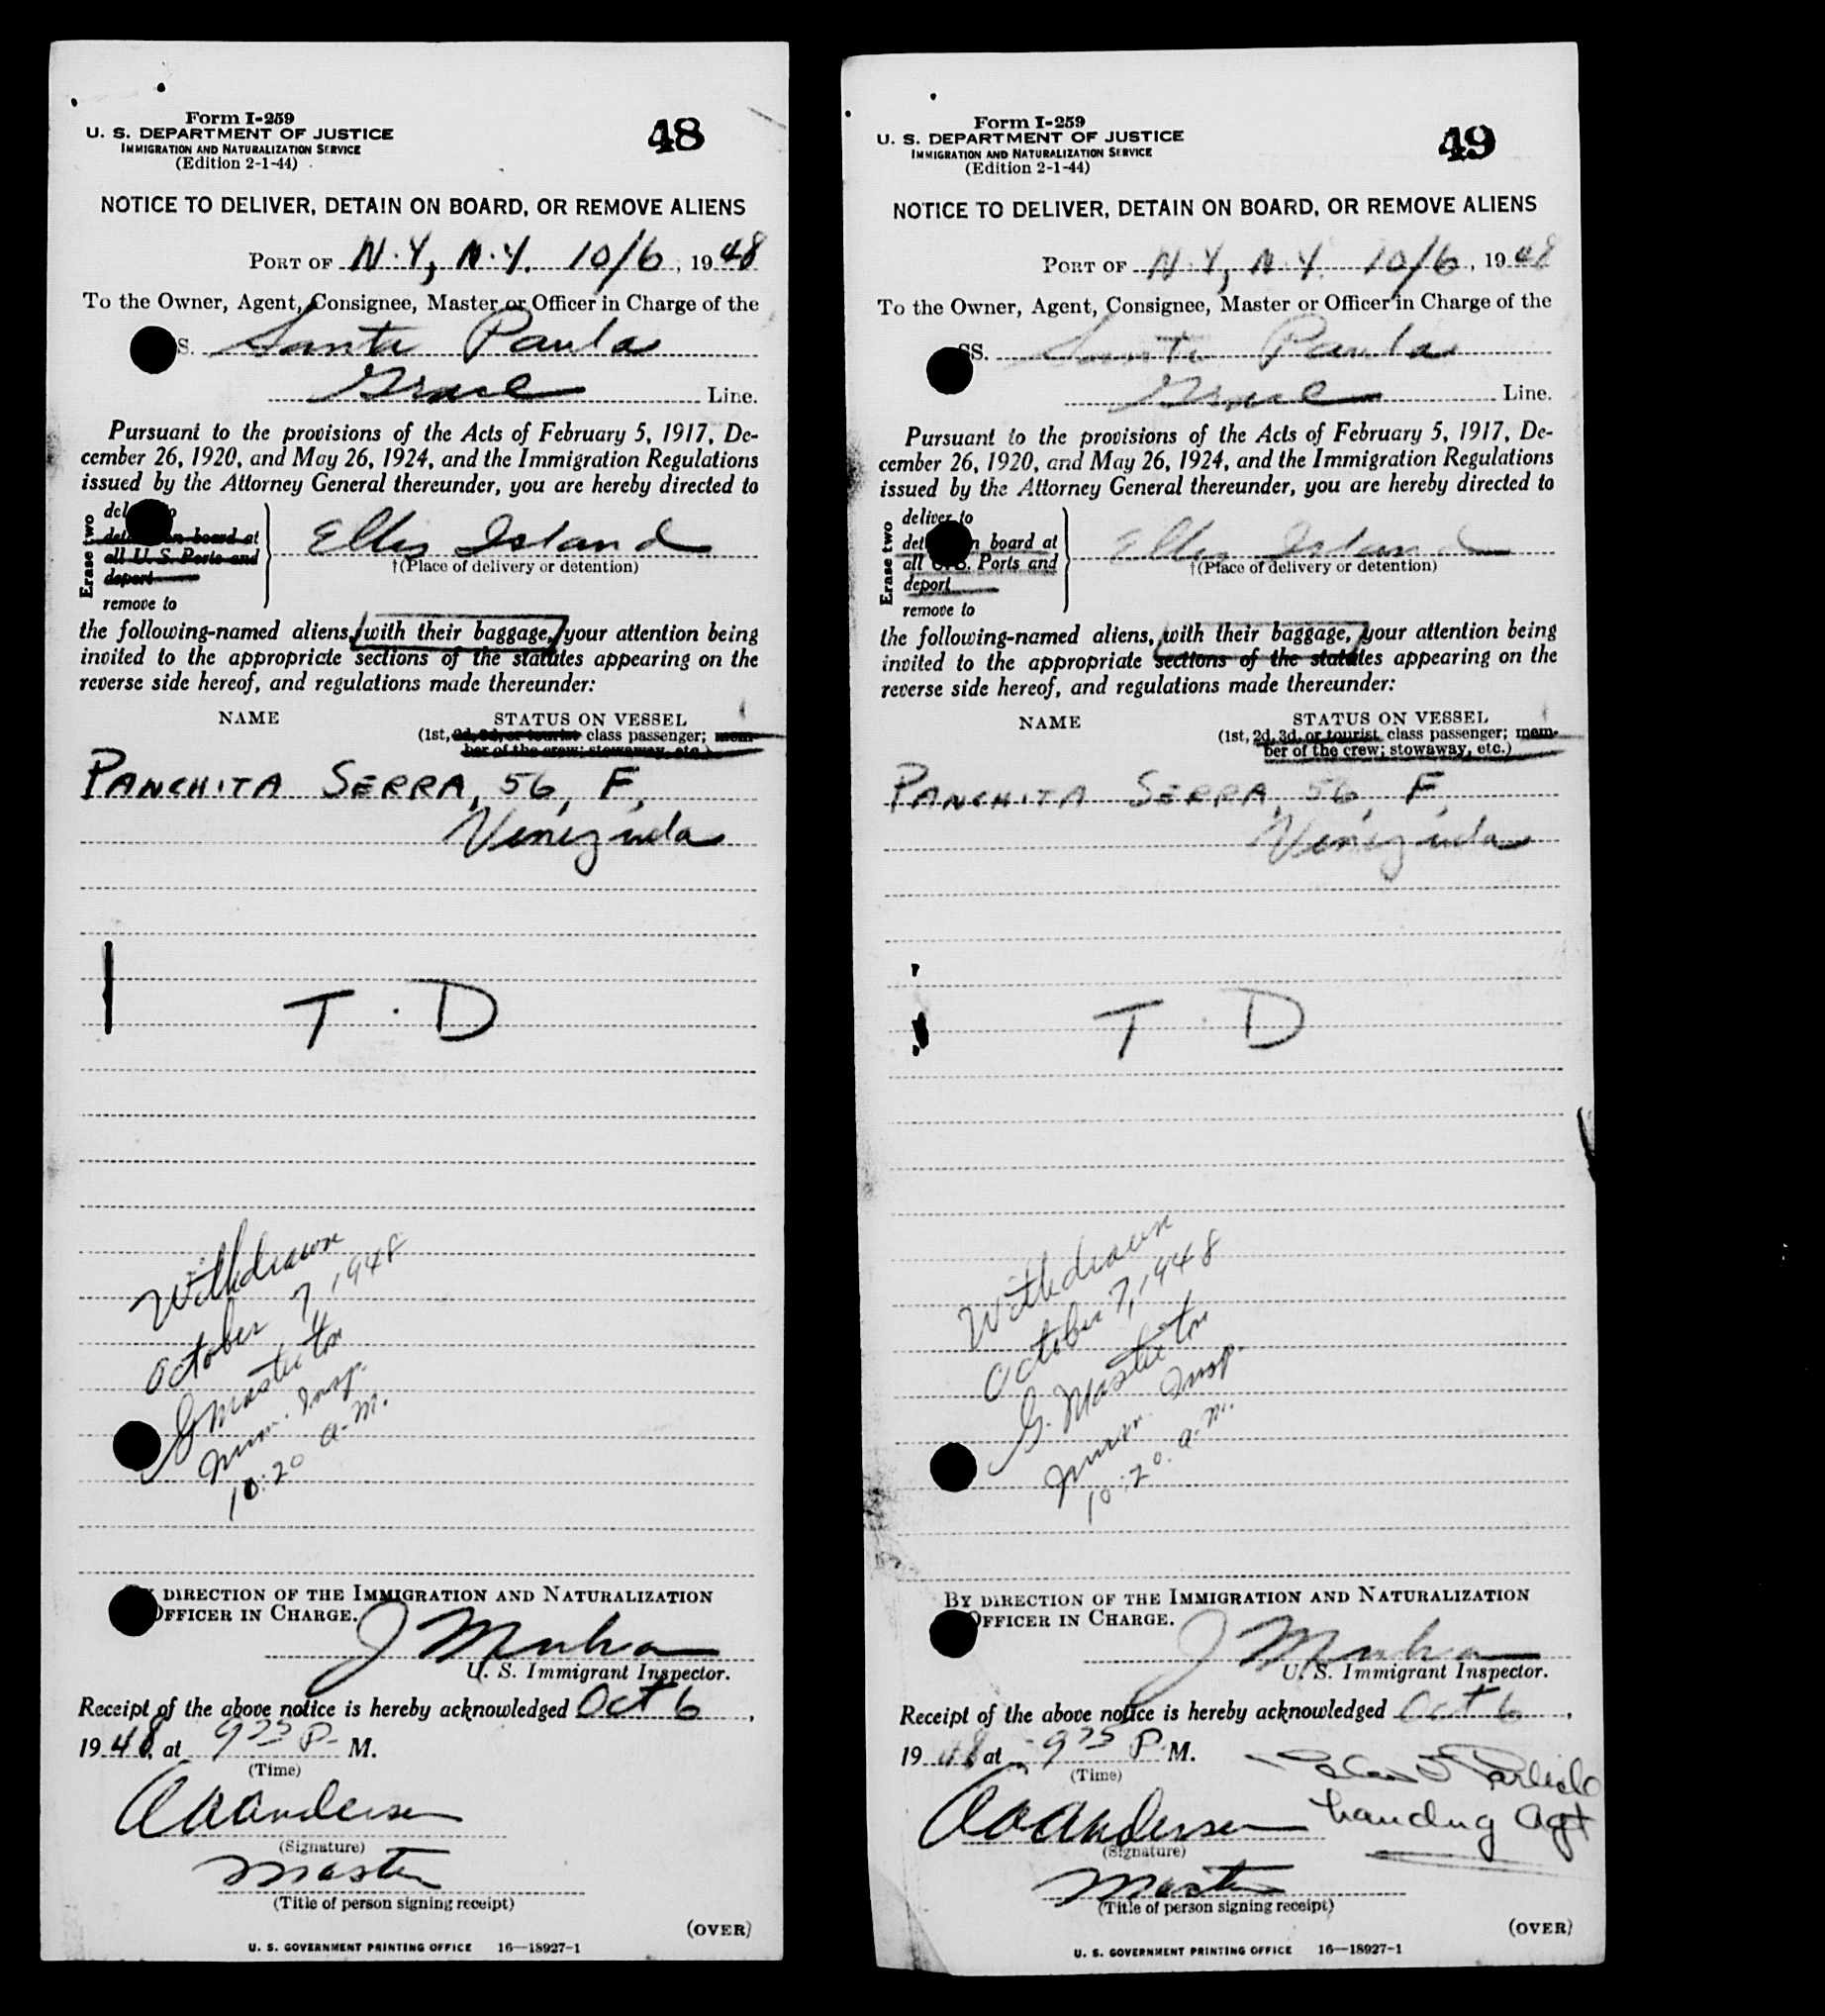 Form I-259
U. S. DEPARTMENT OF JUSTICE
IMMIGRATION AND NATURALIZATION SERVICE
(Edition 2-1-44)
48
NOTICE TO DELIVER, DETAIN ON BOARD, OR REMOVE ALIENS
PORT OF N.Y, N.Y. 10/6, 1948
To the Owner, Agent, Consignee, Master or Officer in Charge of the
S. Santa Paula
Grace Line.
Pursuant to the provisions of the Acts of February 5, 1917, De-
cember 26, 1920, and May 26, 1924, and the Immigration Regulations
issued by the Attorney General thereunder, you are hereby directed to
Erase two
del o
det n board at
all U. S. Ports and
deport
remove to
Ellis Island
†(Place of delivery or detention)
the following-named aliens, with their baggage, your attention being
invited to the appropriate sections of the statutes appearing on the
reverse side hereof, and regulations made thereunder:
NAME
STATUS ON VESSEL
(1st, 2d, 3d, or tourist class passenger; mem-
ber of the crew; stowaway, etc.)
PANCHITA SERRA, 56, F,
Venezuela
T . D
Withdrawn
October 7, 1948
Imm. Insp.
10:20 a.m.
DIRECTION OF THE IMMIGRATION AND NATURALIZATION
OFFICER IN CHARGE.
J Muha
U. S. Immigrant Inspector.
Receipt of the above notice is hereby acknowledged Oct 6,
1948, at 9 25 P. M.
(Time)
Anderson
(Signature)
Master
(Title of person signing receipt)
(OVER)
U. S. GOVERNMENT PRINTING OFFICE 16—18927-1
Form I-259
U. S. DEPARTMENT OF JUSTICE
IMMIGRATION AND NATURALIZATION SERVICE
(Edition 2-1-44)
49
NOTICE TO DELIVER, DETAIN ON BOARD, OR REMOVE ALIENS
PORT OF N.Y, N.Y. 10/6, 1948
To the Owner, Agent, Consignee, Master or Officer in Charge of the
SS. Santa Paula
Grace Line.
Pursuant to the provisions of the Acts of February 5, 1917, De-
cember 26, 1920, and May 26, 1924, and the Immigration Regulations
issued by the Attorney General thereunder, you are hereby directed to
Erase two
deliver to
det n board at
all U. S. Ports and
deport
remove to
Ellis Island
†(Place of delivery or detention)
the following-named aliens, with their baggage, your attention being
invited to the appropriate sections of the statutes appearing on the
reverse side hereof, and regulations made thereunder:
NAME
STATUS ON VESSEL
(1st, 2d, 3d, or tourist class passenger; mem-
ber of the crew; stowaway, etc.)
PANCHITA SERRA, 56, F,
Venezuela
T . D
Withdrawn
October 7, 1948
Imm. Insp.
10:20 a.m.
BY DIRECTION OF THE IMMIGRATION AND NATURALIZATION
OFFICER IN CHARGE.
J Muha
U. S. Immigrant Inspector.
Receipt of the above notice is hereby acknowledged Oct 6,
1948 at 9 25 P. M.
(Time)
Anderson
(Signature)
Master
(Title of person signing receipt)
Agt
(OVER)
U. S. GOVERNMENT PRINTING OFFICE 16—18927-1